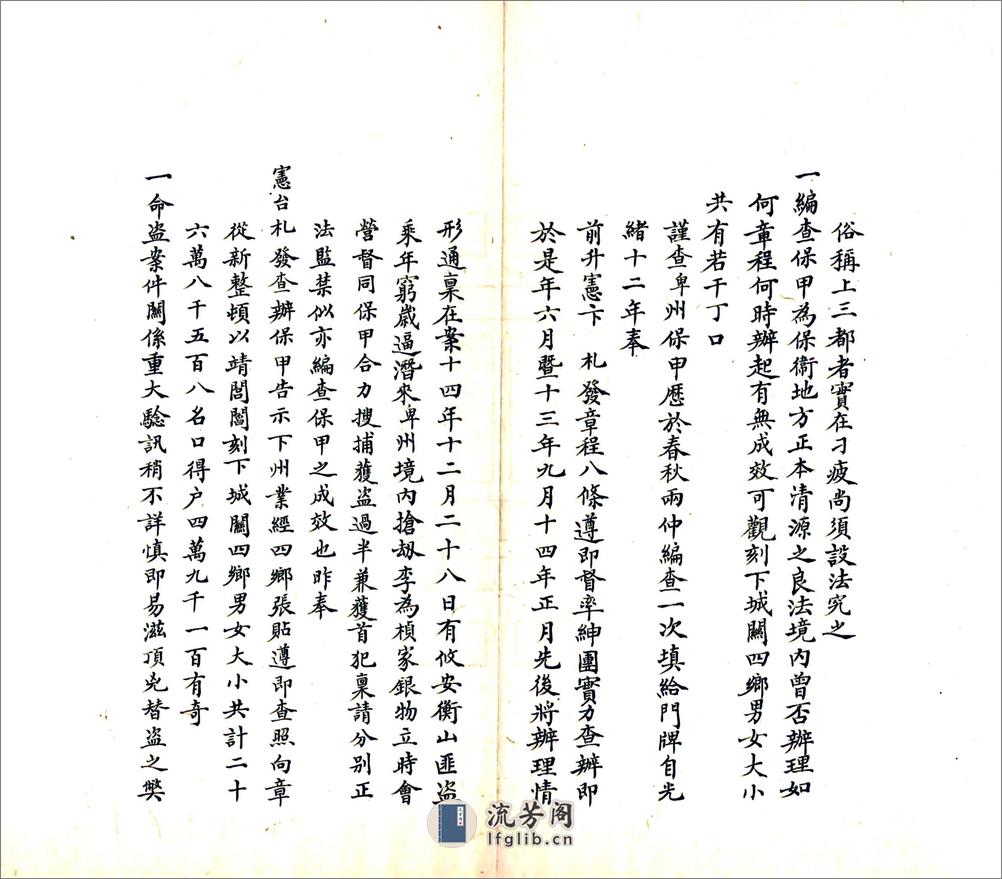 俗稱上三都者實在刁疲尚須設法究之
一編查保甲為保衛地方正本清源之良法境內曾否辦理如
何章程何時辦起有無成效可觀刻下城關四鄉男女大小
共有若干丁口
謹查卑州保甲歷於春秋兩仲編查一次填給門牌自光
緒十二年奉
前升憲卞 札發章程八條遵即督率紳團實力查辦即
於是年六月暨十三年九月十四年正月先後將辦理情
形通稟在案十四年十二月二十八日有攸安衡山匪盜
乘年窮歲逼潛來卑州境內搶劫李為楨家銀物立時會
營督同保甲合力搜捕獲盜過半兼獲首犯稟請分別正
法監禁似亦編查保甲之成效也昨奉
憲台札發查辦保甲告示下州業經四鄉張貼遵即查照向章
從新整頓以靖閭閻刻下城關四鄉男女大小共計二十
六萬八千五百八名口得户四萬九千一百有奇
一命盜案件關係重大驗訊稍不詳慎即易滋頂兇替盜之弊
流芳阁
lfglib.cn